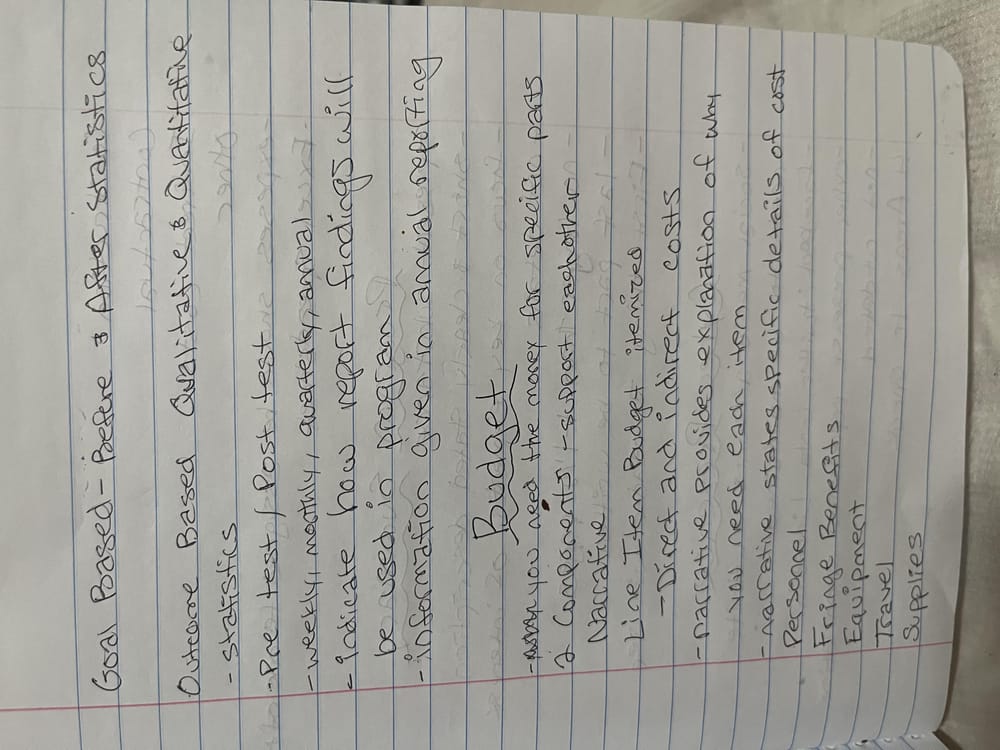 Goal Based - Before & After statistics
Outcome Based Qualitative & Quantitative
- statistics
- Pre test/Post test
- weekly, monthly, quarterly, annual
- indicate how report findings will
be used in program
- information given in annual reporting
Budget
- why you need the money for specific parts
2 Components - support each other
Narrative
Line Item Budget itemized
- Direct and indirect costs
- narrative provides explanation of why
you need each item
- narrative states specific details of cost
Personnel
Fringe Benefits
Equipment
Travel
Supplies